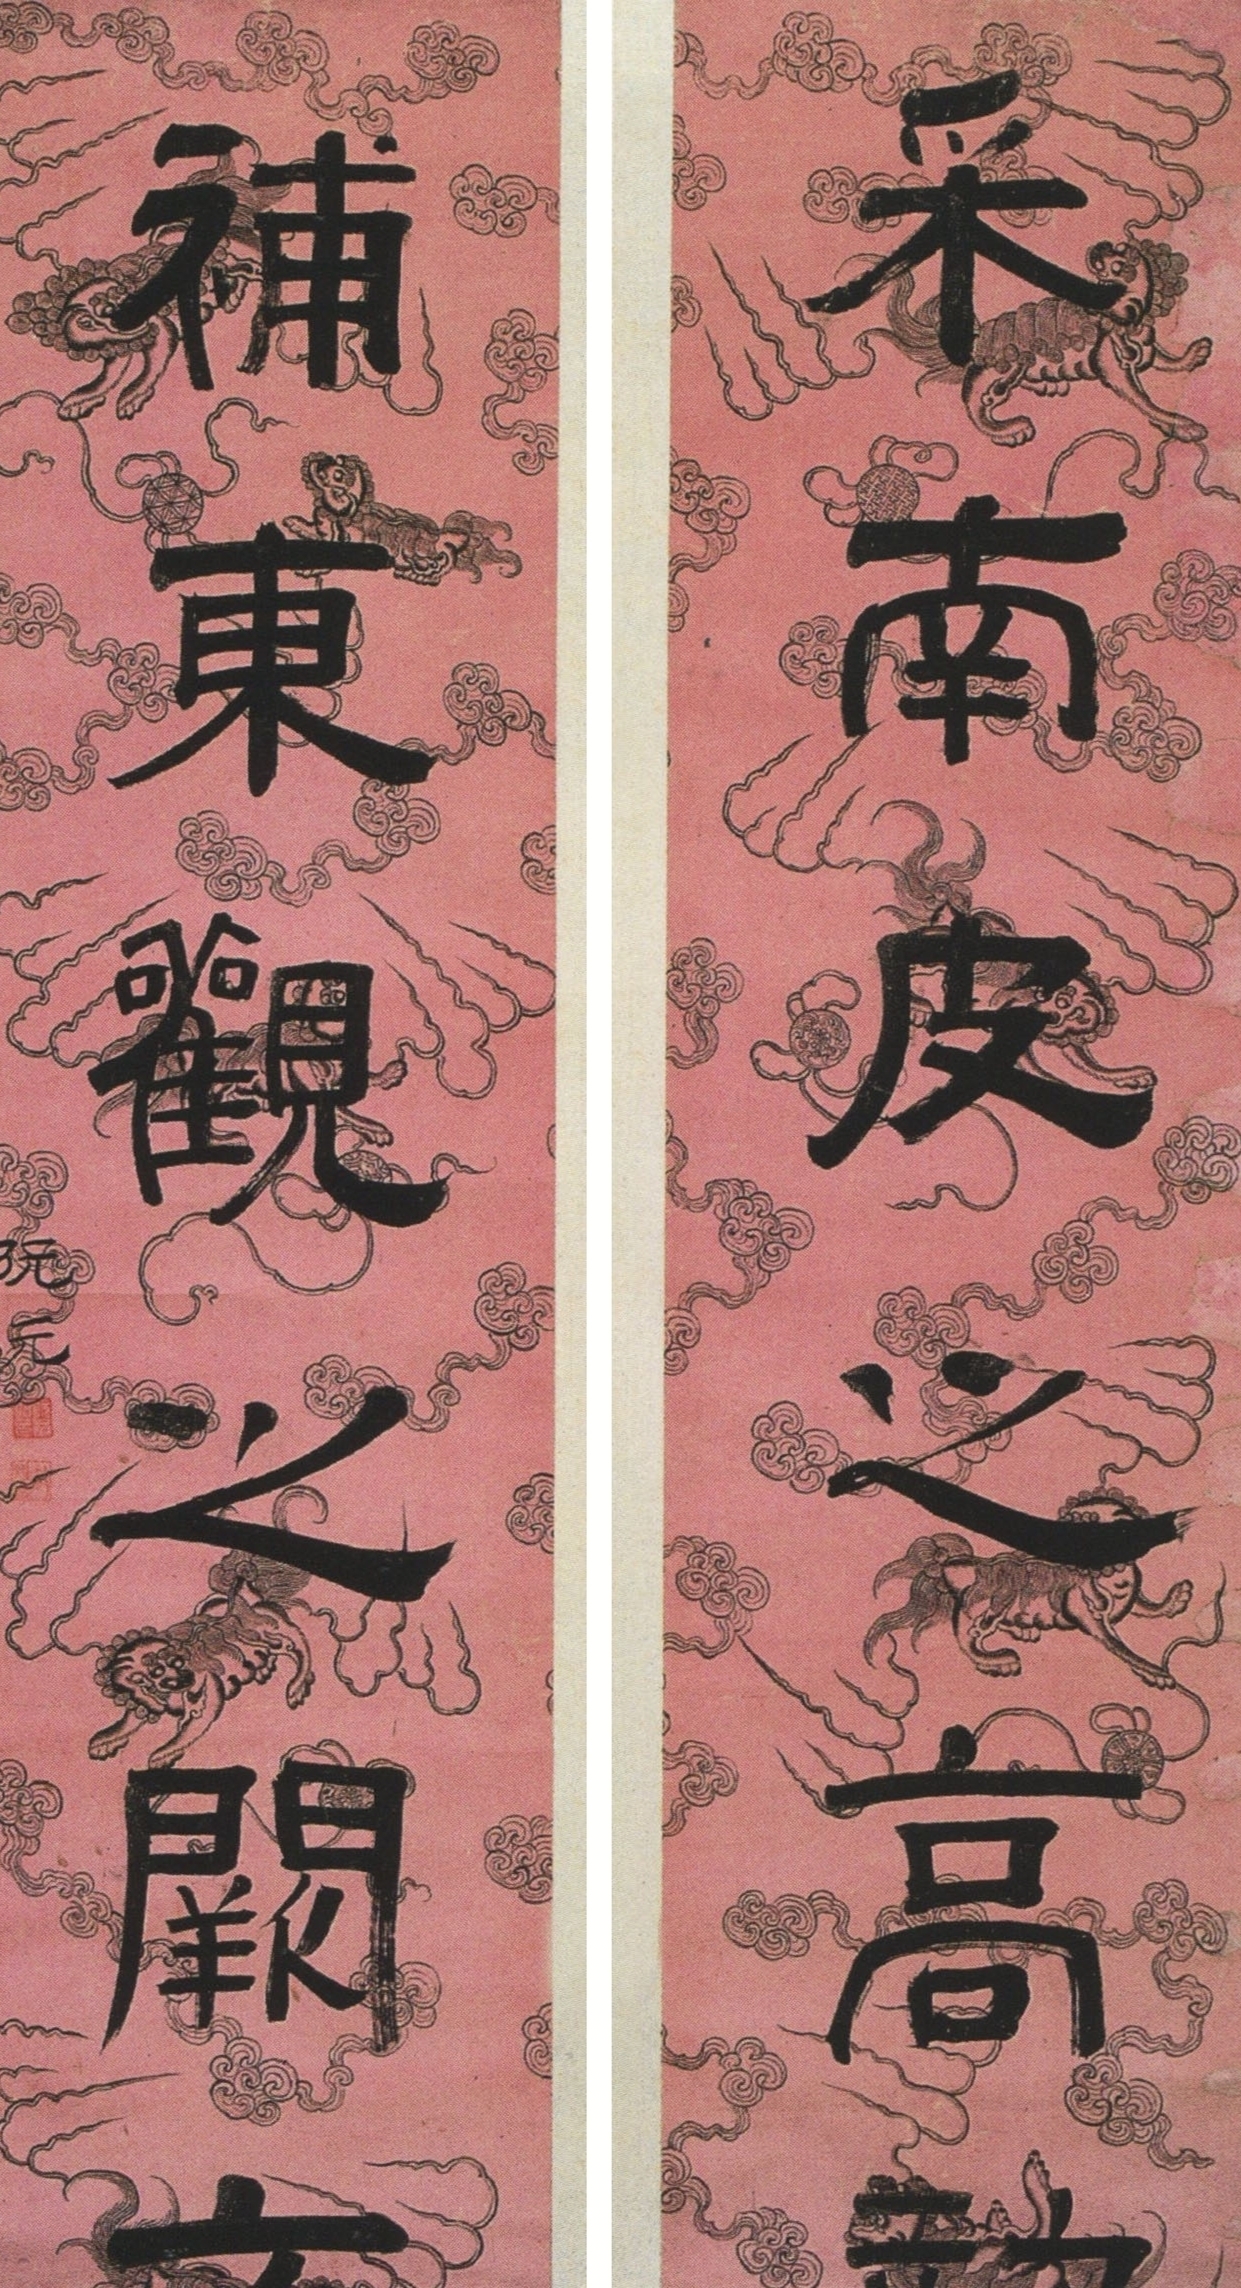 采南皮之高
補東觀之闕
阮元